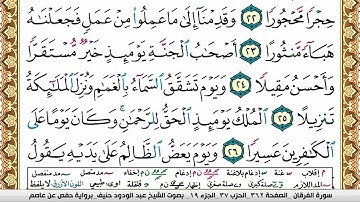 حِجْرًا مَّحْجُورًا ٢٢ وَقَدِمْنَآ إِلَىٰ مَا عَمِلُوا۟ مِنْ عَمَلٍ فَجَعَلْنَـٰهُ
هَبَآءً مَّنثُورًا ٢٣ أَصْحَـٰبُ ٱلْجَنَّةِ يَوْمَئِذٍ خَيْرٌ مُّسْتَقَرًّا
وَأَحْسَنُ مَقِيلًا ٢٤ وَيَوْمَ تَشَقَّقُ ٱلسَّمَآءُ بِٱلْغَمَـٰمِ وَنُزِّلَ ٱلْمَلَـٰٓئِكَةُ
تَنزِيلًا ٢٥ ٱلْمُلْكُ يَوْمَئِذٍ ٱلْحَقُّ لِلرَّحْمَـٰنِ ۚ وَكَانَ يَوْمًا عَلَى
ٱلْكَـٰفِرِينَ عَسِيرًا ٢٦ وَيَوْمَ يَعَضُّ ٱلظَّالِمُ عَلَىٰ يَدَيْهِ يَقُولُ
سورة الفرقان الصفحة ٣٦٢ الحزب ٣٧ الجزء ١٩ بصوت الشيخ عبد الودود حنيف برواية حفص عن عاصم